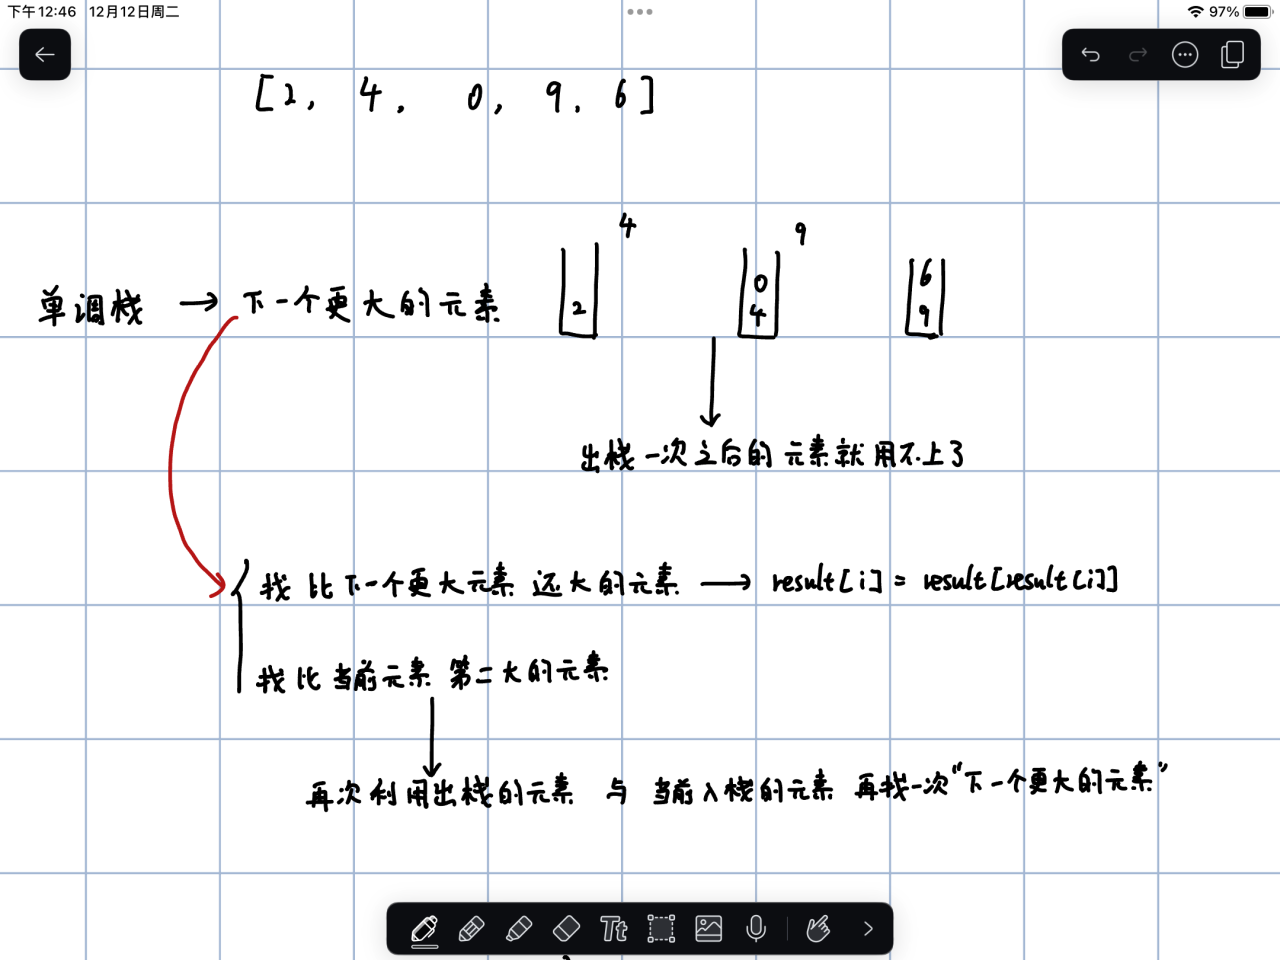 下午12:46 12月12日周二
97%
[2, 4. 0, 9. 6]
4
9
2
0
4
6
9
单调栈 → 下一个更大的元素
出栈一次之后的元素就用不上了
找比下一个更大元素还大的元素 → result[i] = result[result[i]]
找比当前元素第二大的元素
再次利用出栈的元素与当前入栈的元素再找一次“下一个更大的元素”
Tt